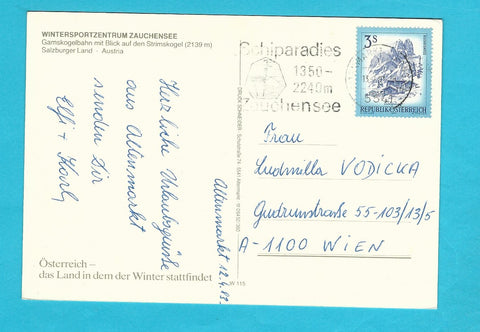 WINTERSPORTZENTRUM ZAUCHENSEE
Gamskogelbahn mit Blick auf den Strimskogel (2139 m)
Salzburger Land · Austria
Herzliche Urlaubsgrüsse
aus Altenmarkt
senden Dir
Elfi + Karli
Altenmarkt 12.4.83
Österreich –
das Land in dem der Winter stattfindet
Schiparadies
1350-
2240m
Zauchensee
3S
REPUBLIK ÖSTERREICH
Frau
Ludmilla VODICKA
Gudrunstraße 55-103/13/5
A-1100 WIEN